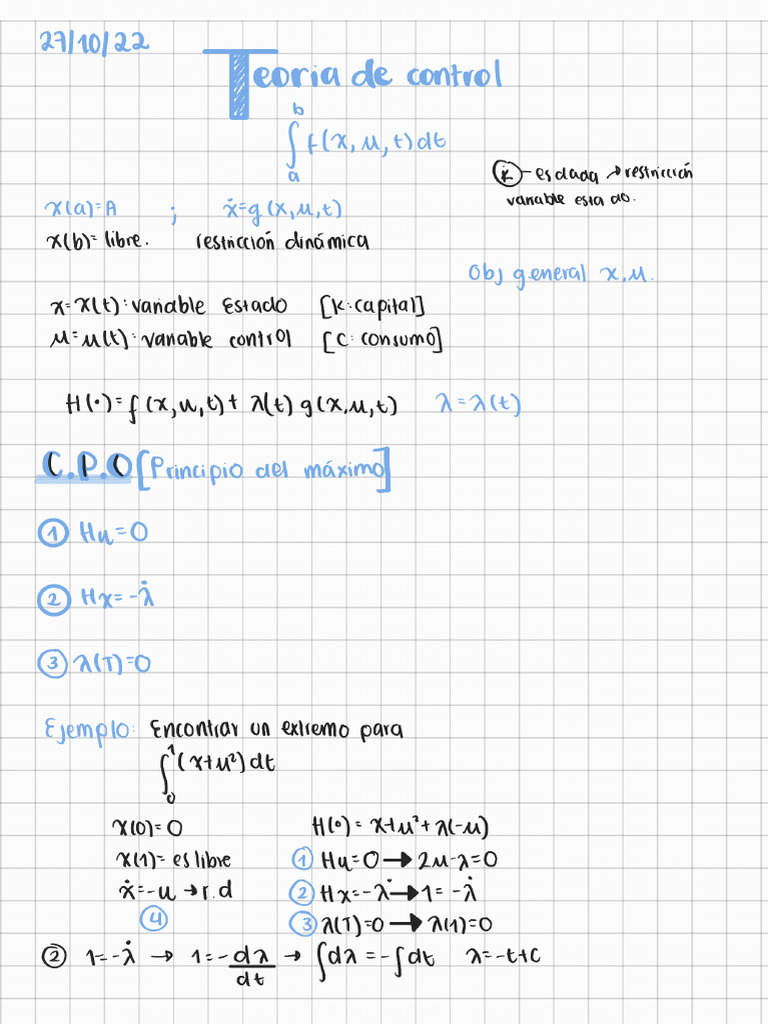 27/10/22
Teoria de control
∫ₐᵇ f(x, u, t) dt
ẋ - es dada → restricción
variable estado.
x(a)=A ; ẋ=g(x, u, t)
x(b)= libre. restricción dinámica
Obj general x, u.
x=x(t): variable estado [K: capital]
u=u(t): variable control [C: consumo]
H(·)= f(x, u, t) + λ(t) g(x, u, t) λ=λ(t)
C.P.O [Principio del máximo]
① Hu=0
② Hx=-λ̇
③ λ(T)=0
Ejemplo: Encontrar un extremo para
∫₀¹ (x+u²) dt
x(0)=0 H(·)= x+u²+λ(-u)
x(1)= es libre ① Hu=0 → 2u-λ=0
ẋ=-u → r.d ② Hx=-λ̇ → 1=-λ̇
④ ③ λ(T)=0 → λ(1)=0
② 1=-λ̇ → 1=-dλ/dt → ∫dλ = -∫dt λ=-t+C